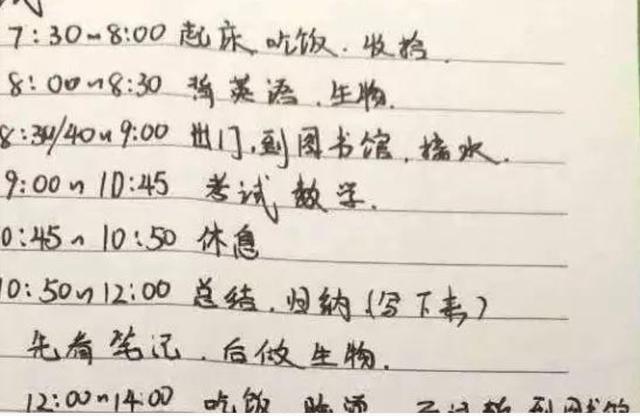 7:30~8:00 起床 吃饭. 收拾.
8:00~8:30 背英语. 生物.
8:30/40~9:00 出门, 到图书馆, 接水.
9:00~10:45 考试 数学.
0:45~10:50 休息
10:50~12:00 总结. 归纳 (写下来)
先看笔记. 后做生物.
12:00~14:00 吃饭 到图书馆